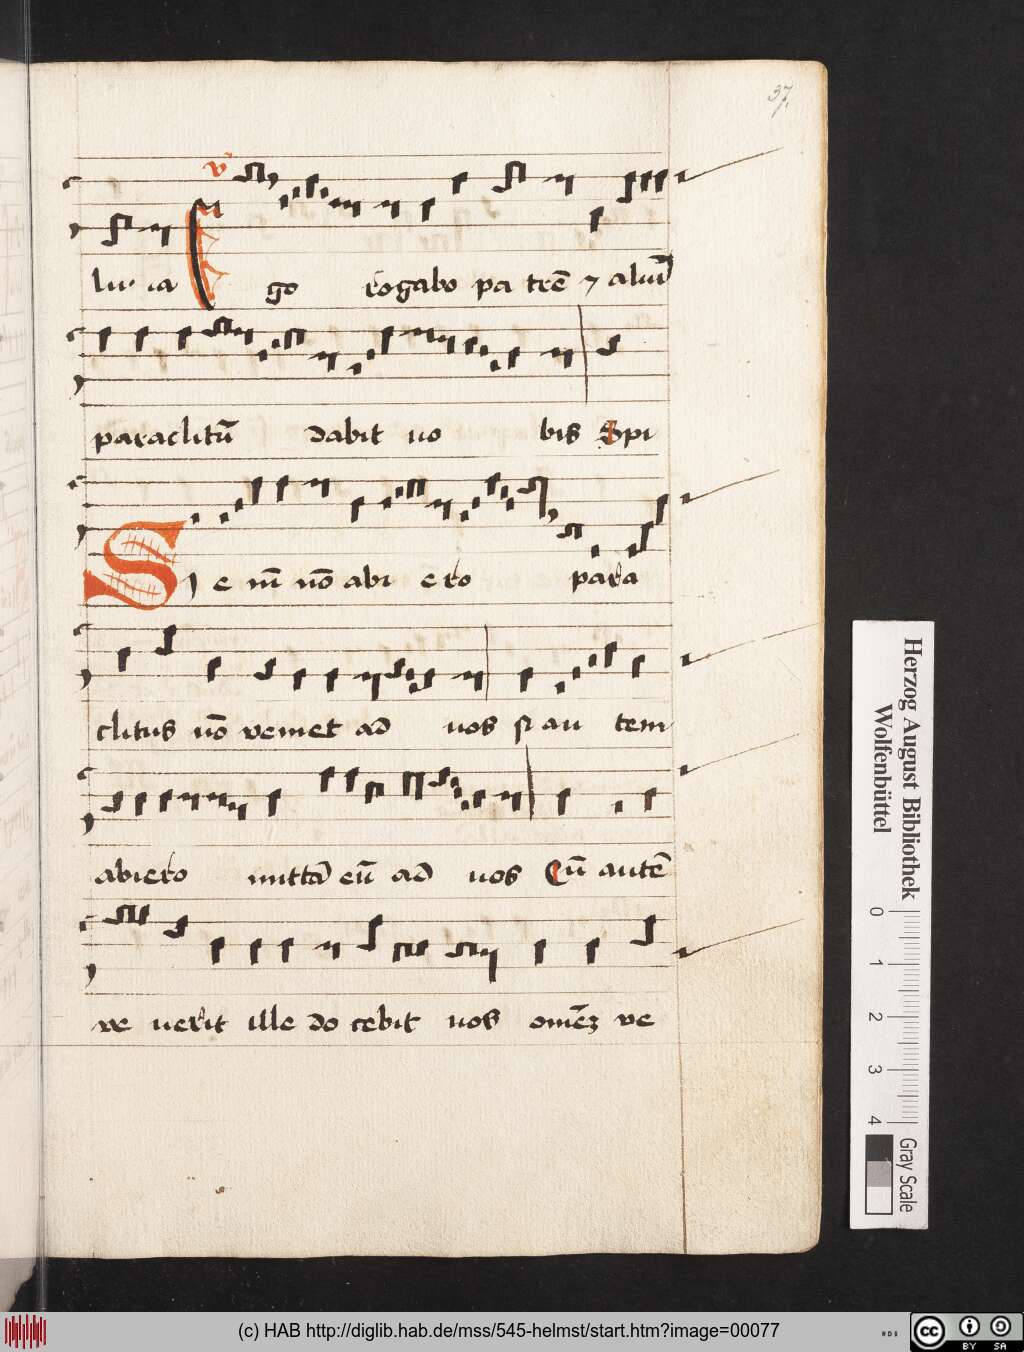 37.
v
lu ia E go rogabo pa trē ⁊ aliū
paraclitū dabit uo bis Spi
Si e ni nō abi ero para
clitus nō veniet ad uos si au tem
abiero mittā eū ad uos Cū autē
ve uerit ille do cebit uos omēz ve
Herzog August Bibliothek
Wolfenbüttel
0 1 2 3 4
Gray Scale
(c) HAB http://diglib.hab.de/mss/545-helmst/start.htm?image=00077
cc BY SA